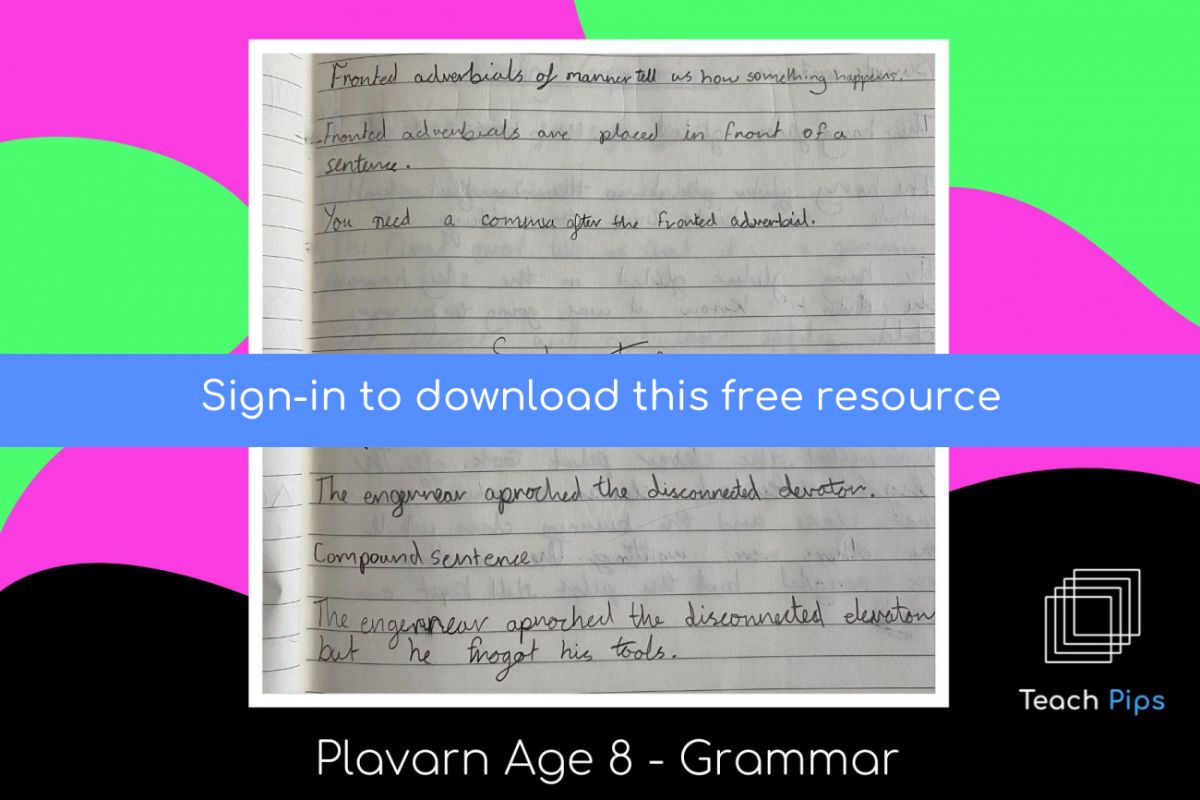 Fronted adverbials of manner tell us how something happens.
Fronted adverbials are placed in front of a
sentence.
You need a comma after the fronted adverbial.
Sign-in to download this free resource
The engennear aproched the disconnected elevator.
Compound sentence
The engennear aproched the disconnected elevator
but he frogot his tools.
Teach Pips
Plavarn Age 8 - Grammar